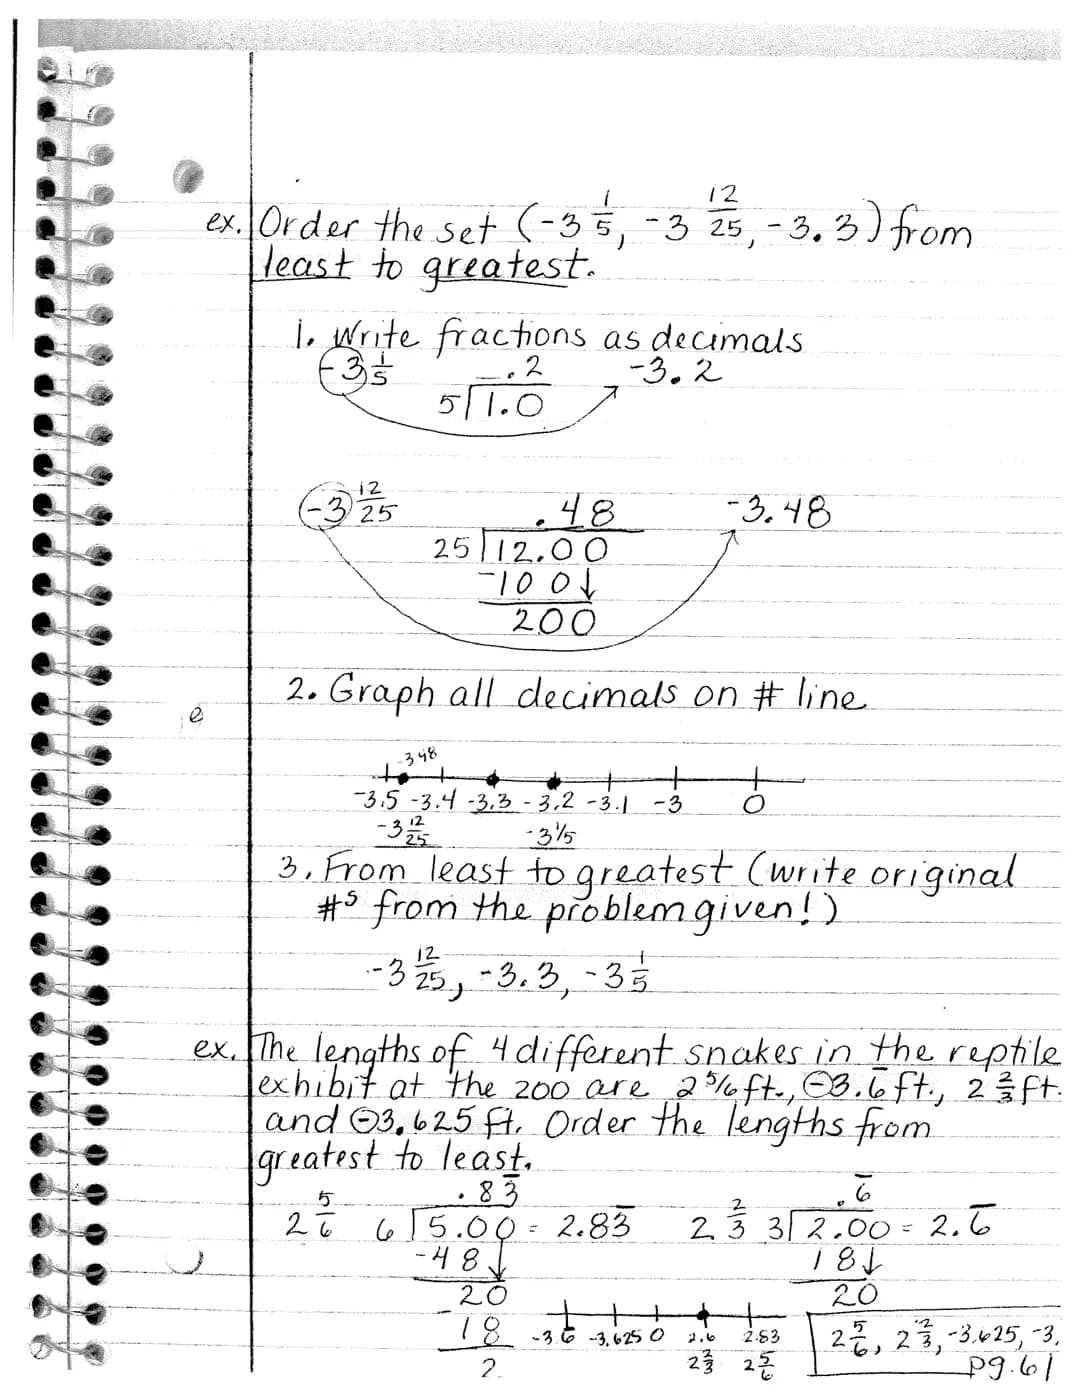 ex. Order the set (-3 1/5, -3 12/25, -3.3) from
least to greatest.
1. Write fractions as decimals
-3 1/5 .2 -3.2
5 1.0
-3 12/25 .48 -3.48
25 12.00
-10 0↓
200
2. Graph all decimals on # line
e
-3.48
-3.5 -3.4 -3.3 -3.2 -3.1 -3 0
-3 12/25 -3 1/5
3. From least to greatest (write original
#s from the problem given!)
-3 12/25, -3.3, -3 1/5
ex. The lengths of 4 different snakes in the reptile
exhibit at the zoo are 2 5/6 ft., -3.6̅ ft., 2 2/3 ft.
and -3.625 ft. Order the lengths from
greatest to least.
.83̅ .6̅
2 5/6 6 5.00 = 2.83̅ 2 2/3 3 2.00 = 2.6̅
-48↓ 18↓
20 20
-18 -3.6̅ -3.625 0 2.6 2.83 2 5/6, 2 2/3, -3.625, -3.
2 2 2/3 2 5/6 pg. 61